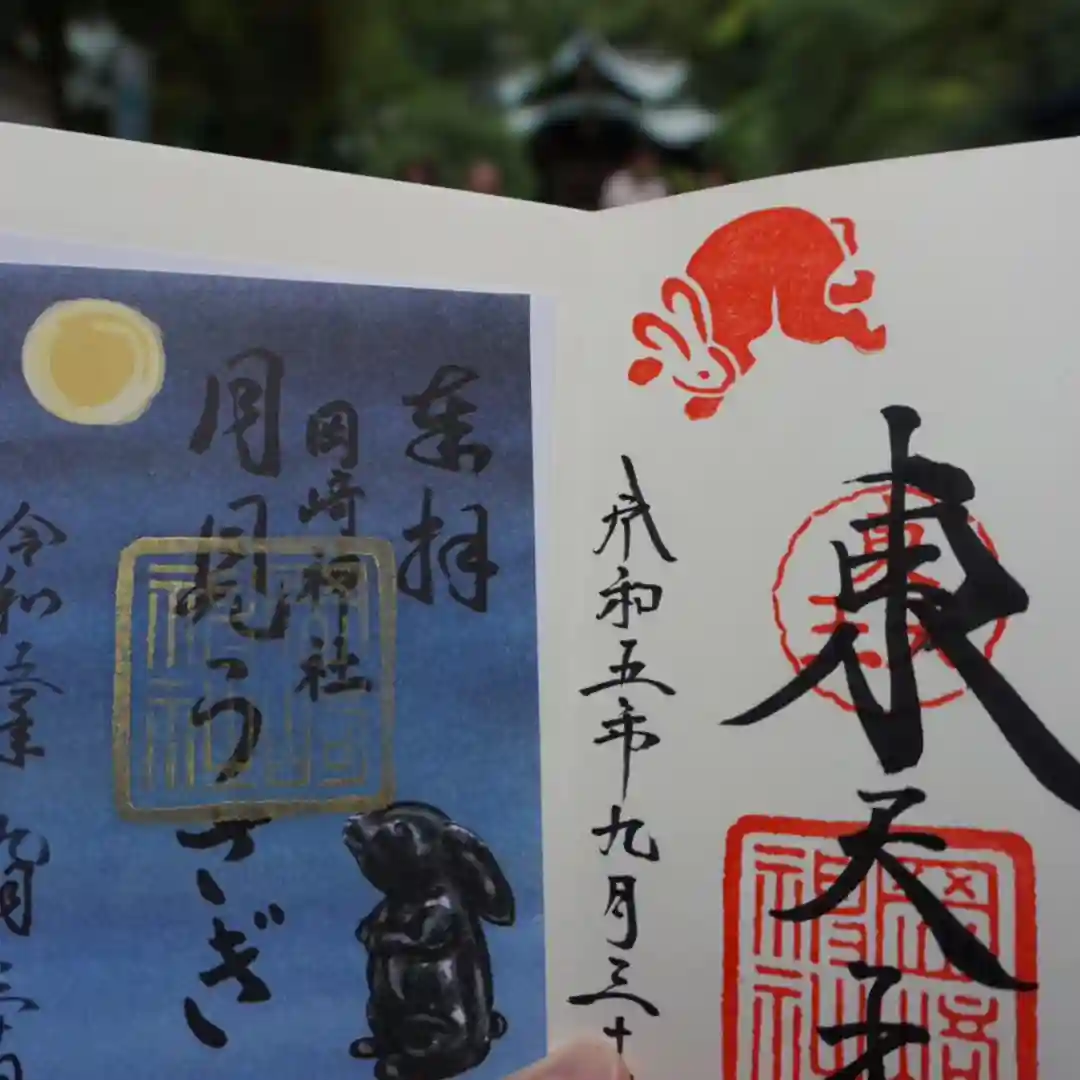 東天
令和五年九月三十
奉拝
岡崎神社
月見うさぎ
令和五年九月三十日